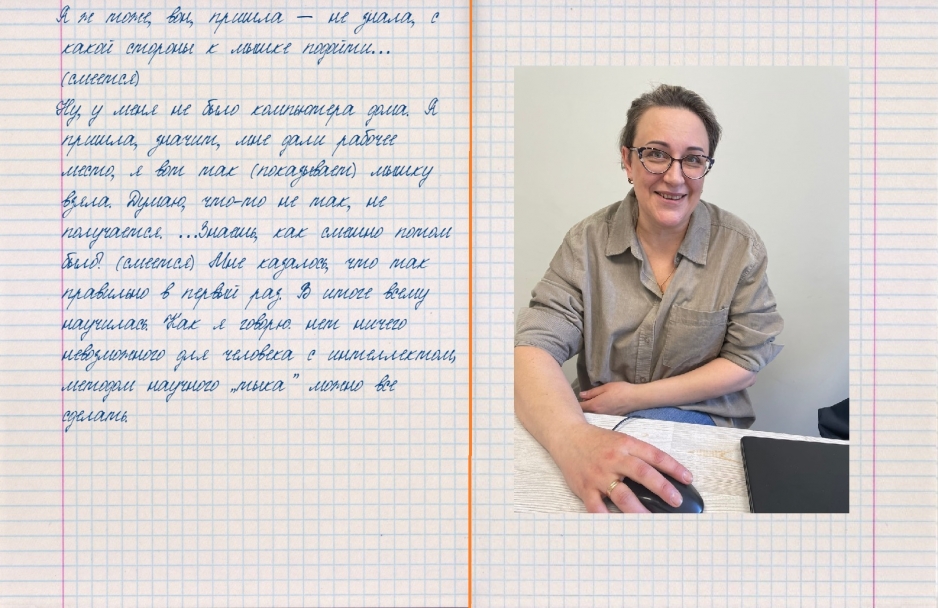 Я ж тоже, вон, пришла — не знала, с
какой стороны к мышке подойти...
(смеется)
Ну, у меня не было компьютера дома. Я
пришла, значит, мне дали рабочее
место, я вот так (показывает) мышку
взяла. Думаю, что-то не так, не
получается. ...Знаешь, как смешно потом
было? (смеется) Мне казалось, что так
правильно в первый раз. В итоге всему
научилась. Как я говорю: нет ничего
невозможного для человека с интеллектом,
методом научного „тыка" можно все
сделать.